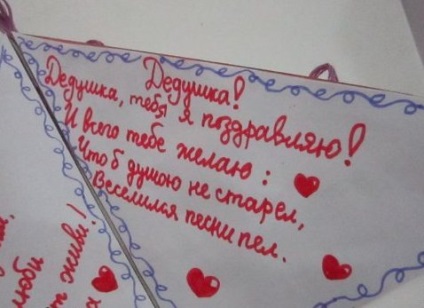 Дедушка!
Дедушка, тебя я поздравляю!
И всего тебе желаю:
Что б душою не старел,
Веселился, песни пел.
люби
живи!